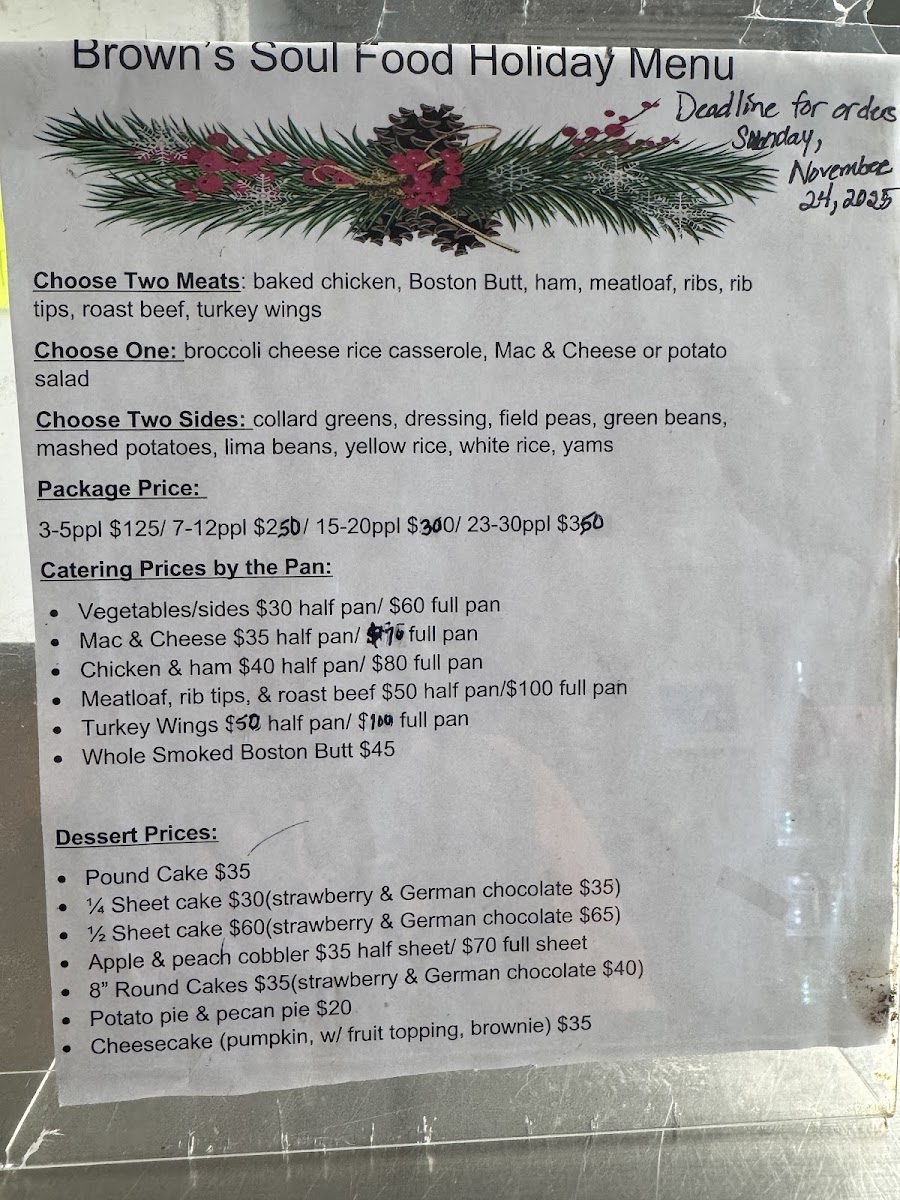 Brown's Soul Food Holiday Menu
Deadline for orders
Sunday,
November
24, 2025
Choose Two Meats: baked chicken, Boston Butt, ham, meatloaf, ribs, rib
tips, roast beef, turkey wings
Choose One: broccoli cheese rice casserole, Mac & Cheese or potato
salad
Choose Two Sides: collard greens, dressing, field peas, green beans,
mashed potatoes, lima beans, yellow rice, white rice, yams
Package Price:
3-5ppl $125/ 7-12ppl $250/ 15-20ppl $300/ 23-30ppl $350
Catering Prices by the Pan:
• Vegetables/sides $30 half pan/ $60 full pan
• Mac & Cheese $35 half pan/ $70 full pan
• Chicken & ham $40 half pan/ $80 full pan
• Meatloaf, rib tips, & roast beef $50 half pan/$100 full pan
• Turkey Wings $50 half pan/ $100 full pan
• Whole Smoked Boston Butt $45
Dessert Prices:
• Pound Cake $35
• ¼ Sheet cake $30(strawberry & German chocolate $35)
• ½ Sheet cake $60(strawberry & German chocolate $65)
• Apple & peach cobbler $35 half sheet/ $70 full sheet
• 8” Round Cakes $35(strawberry & German chocolate $40)
• Potato pie & pecan pie $20
• Cheesecake (pumpkin, w/ fruit topping, brownie) $35